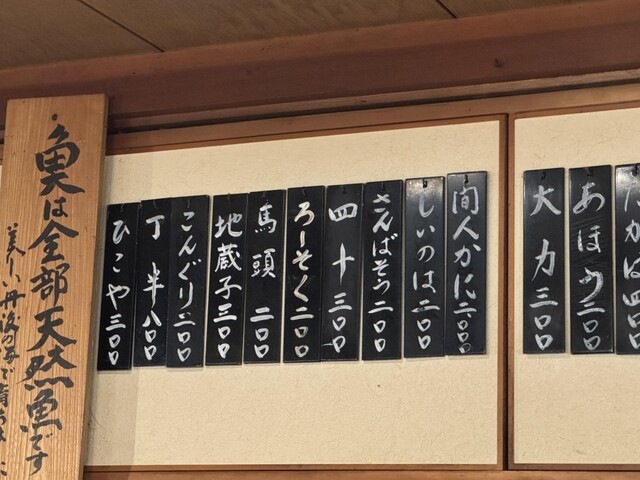 あほう二〇〇
大力三〇〇
間人かに二〇〇〇
しいのは二〇〇
さんばそう二〇〇
四十三〇〇
ろーそく二〇〇
馬頭二〇〇
地蔵子三〇〇
こんぐり三〇〇
丁半八〇〇
ひこや三〇〇
魚は全部天然魚です
美しい丹後の海で育